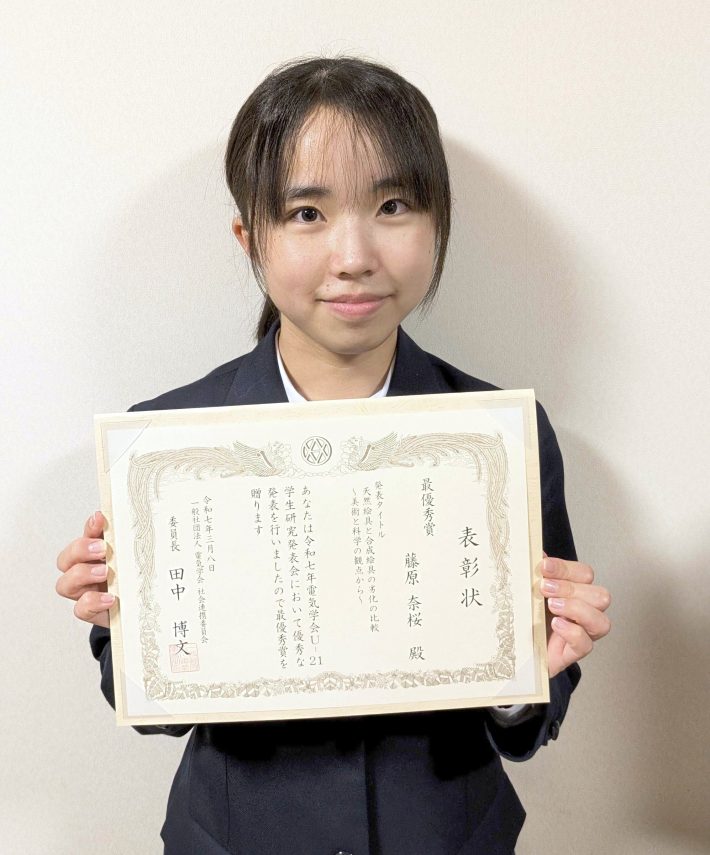 表彰状
最優秀賞
藤原 奈桜 殿
発表タイトル
天然絵具と合成絵具の劣化の比較
～美術と科学の観点から～
あなたは令和七年電気学会U−21
学生研究発表会において優秀な
発表を行いましたので最優秀賞を
贈ります
令和七年三月八日
一般社団法人 電気学会 社会連携委員会
委員長 田中 博文